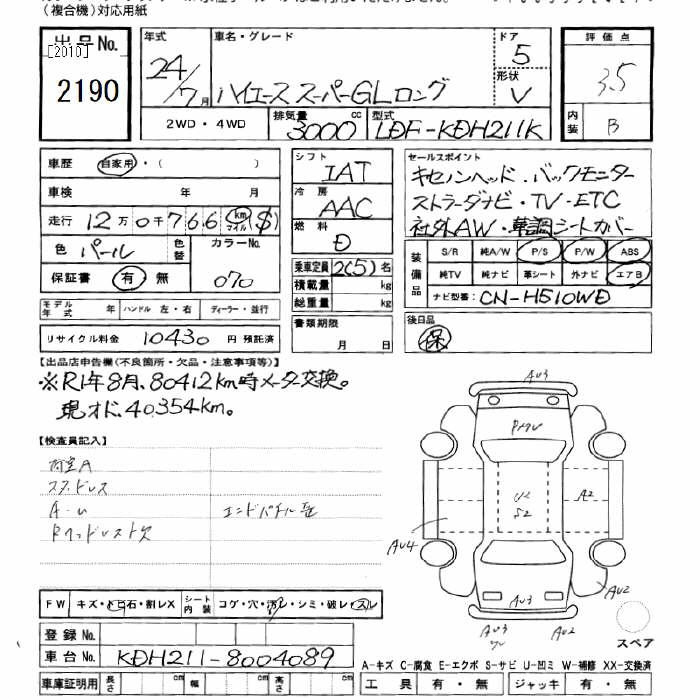 (複合機)対応用紙
出品No.
[2010]
2190
年式
24/7月
車名・グレード
ハイエース スーパーGL ロング
ドア
5
形状
V
評価点
3.5
内装
B
2WD・4WD
排気量
3000cc
型式
LDF-KDH211K
車歴 自家用・( )
車検 年 月
走行 12万0千766 km マイル ($)
色 パール
色替
カラーNo.
070
保証書 有・無
モデル年式 年 ハンドル 左・右 ディーラー・並行
リサイクル料金 10430円 預託済
シフト
IAT
冷房
AAC
燃料
D
乗車定員 2(5)名
積載量 kg
総重量 kg
書類期限
月 日
セールスポイント
キセノンヘッド.バックモニター
ストラーダナビ・TV-ETC
社外AW・革調シートカバー
装備品
S/R 純A/W P/S P/W ABS
純TV 純ナビ 革シート 外ナビ エアB
ナビ型番: CN-H510WD
後日品
保
【出品店申告欄(不良箇所・欠品・注意事項等)】
※R1年8月、80412km時メーター交換。
現オド、40,354km。
【検査員記入】
荷室A
スタッドレス
A-U
エンドパネル歪
Rヘッドレスト欠
AU3
A2
AU4
AU2
AU3
AU3
AU2
スペア
FW キズ・トビ石・割レX
シート内装 コゲ・穴・汚レ・シミ・破レ・スレ
登録No.
車台No. KDH211-8004089
車庫証明用 長さ cm 幅 cm 高さ cm
A-キズ C-腐食 E-エクボ S-サビ U-凹ミ W-補修 XX-交換済
工具 有・無 ジャッキ 有・無